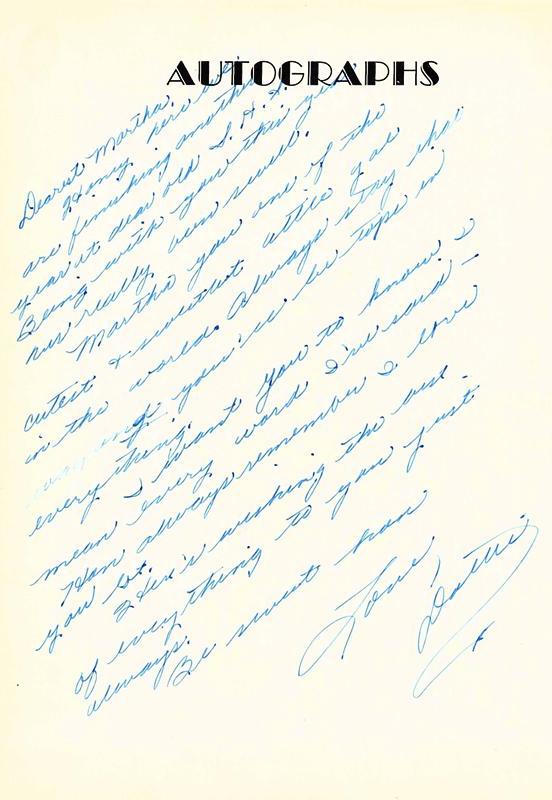 AUTOGRAPHS
Dearest Martha,
Honey, here we
are finishing another
year at dear old S. H. S.
Being with you this year
has really been swell.
Martha you one of the
cutest & sweetest little gal
in the world. Always stay that
way and you'll be tops in
everything.
I want you to know I
mean every word I've said —
Hon always remember I love
you lots.
Here's wishing the best
of everything to you just
always.
Be sweet hon
Love,
Dottie